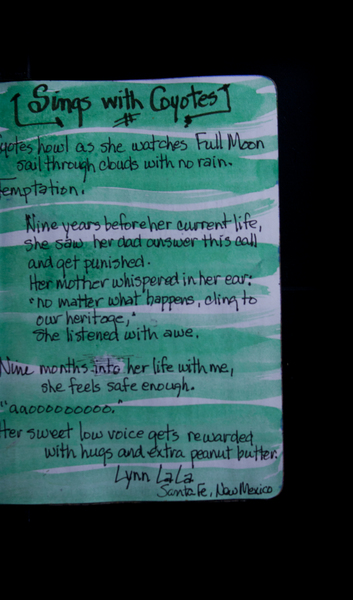 [Sings with Coyotes]
#
yotes howl as she watches Full Moon
sail through clouds with no rain.
emptation.
Nine years before her current life,
she saw her dad answer this call
and get punished.
Her mother whispered in her ear:
"no matter what happens, cling to
our heritage,"
She listened with awe.
Nine months into her life with me,
she feels safe enough.
"aaooooooooo."
Her sweet low voice gets rewarded
with hugs and extra peanut butter.
Lynn LaLa
Santa Fe, New Mexico